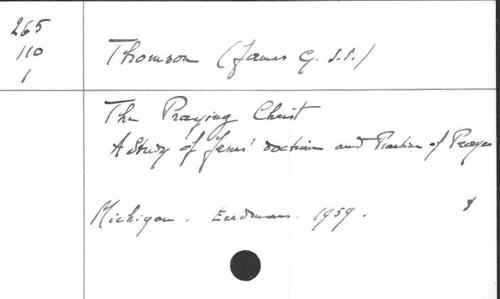 265
110
1
Thomson (James G. S.S.)
The Praying Christ
A Study of Jesus' doctrine and Practice of Prayer
Michigan. Eerdmans. 1959. 8